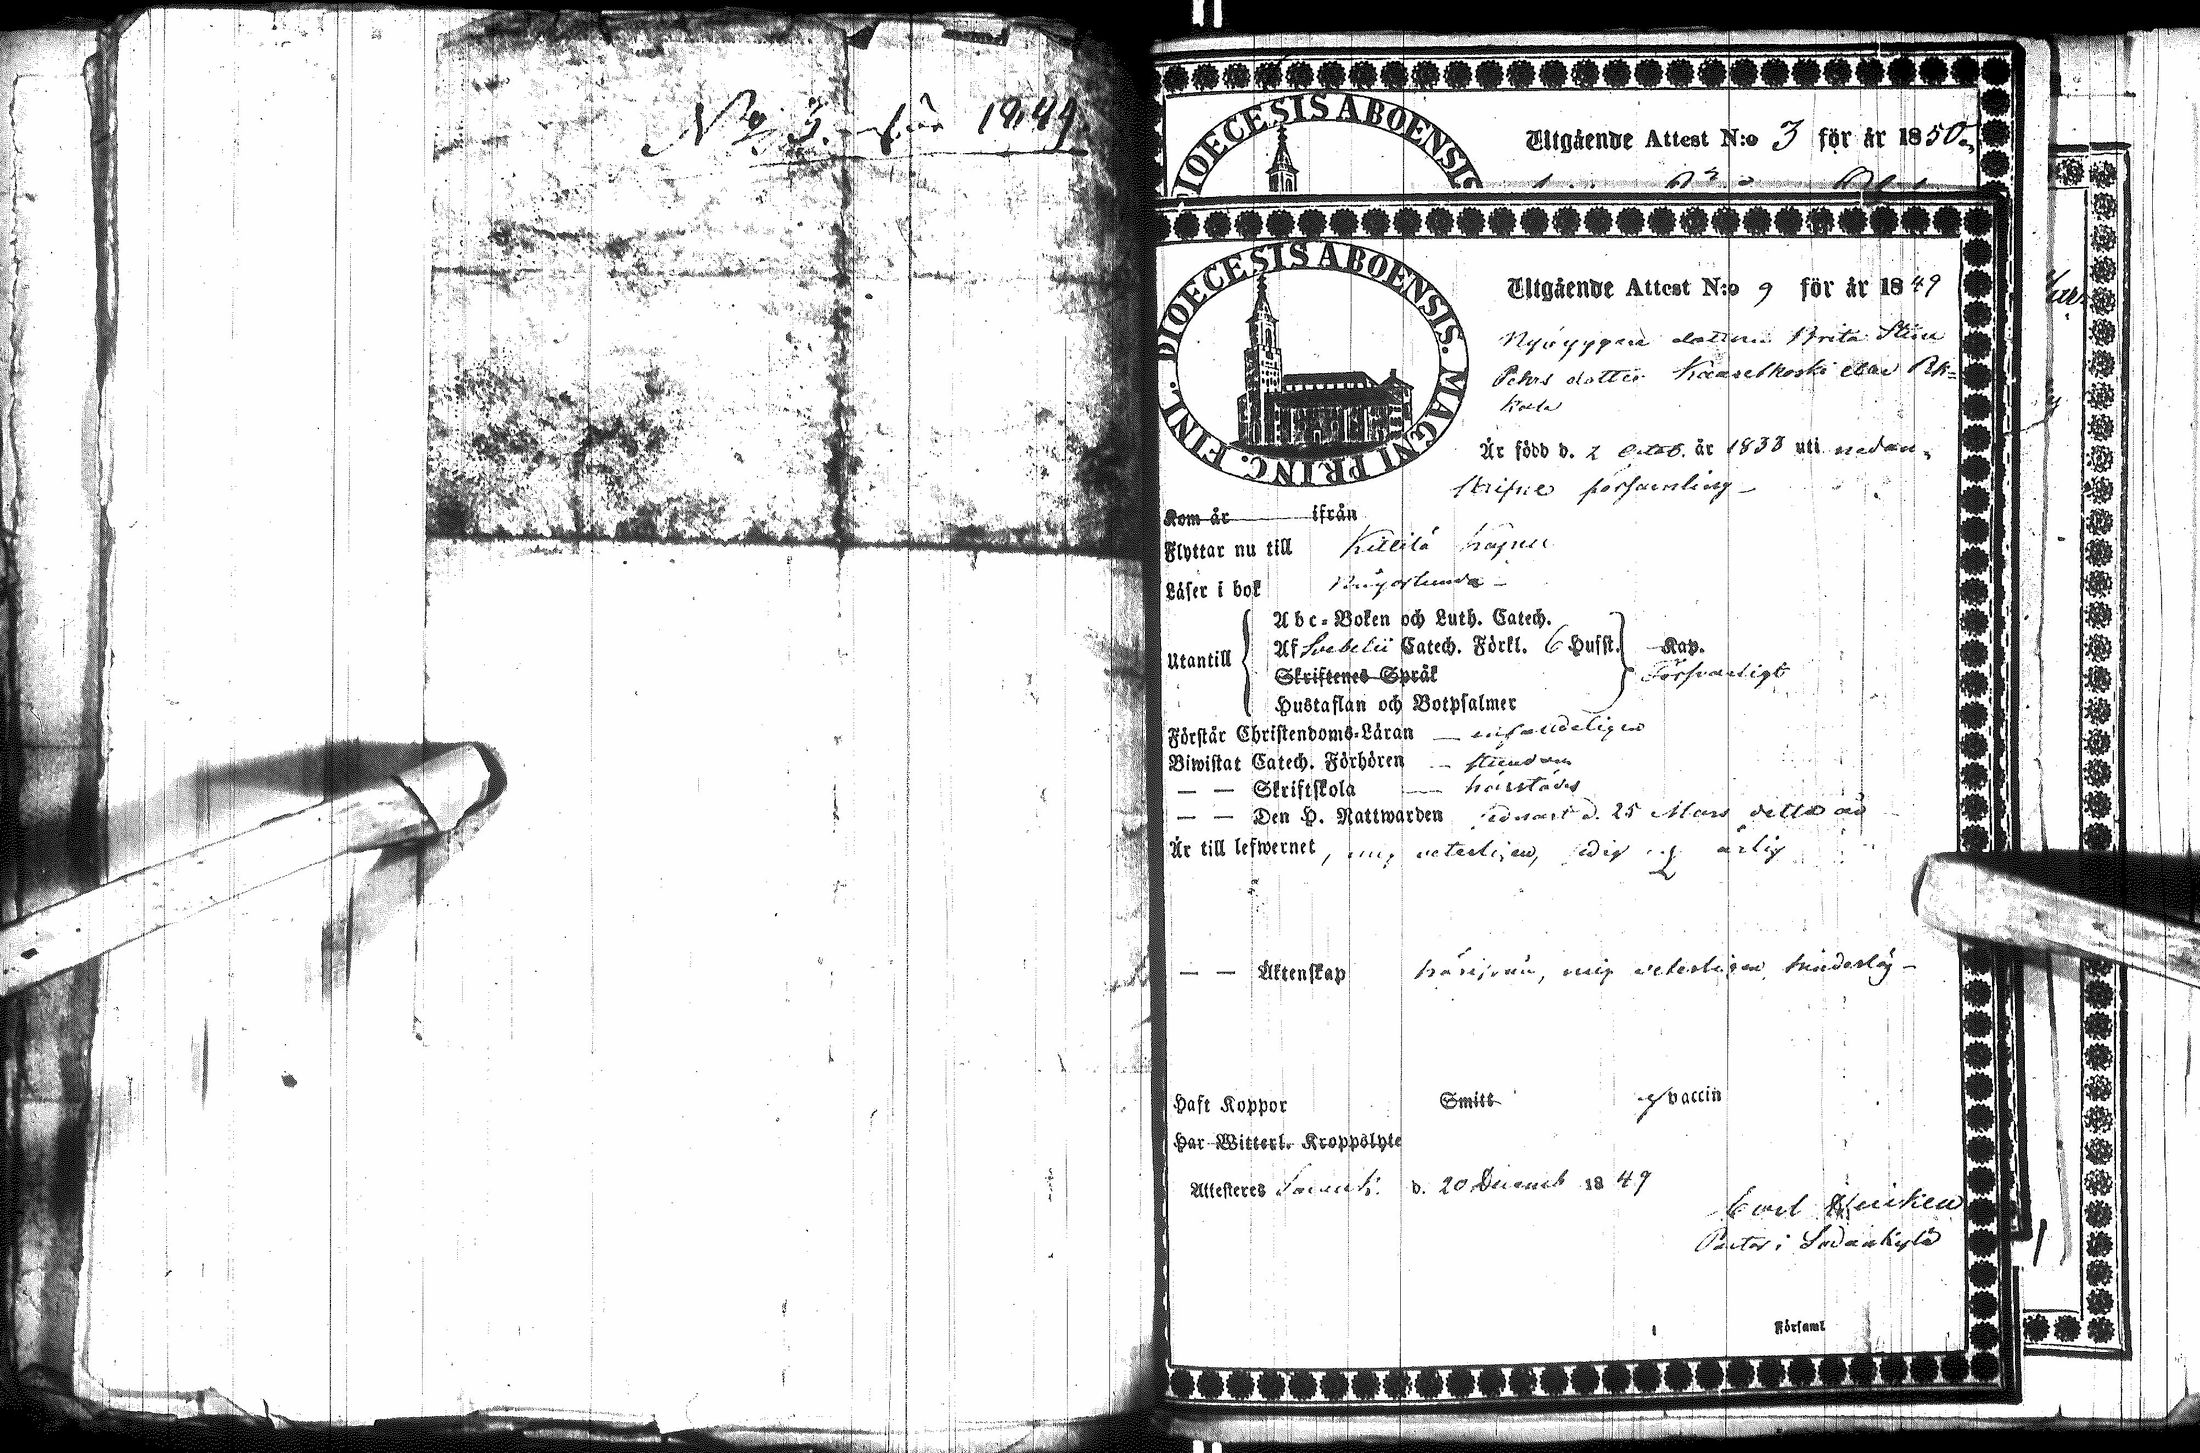 No 3. för 1849.
DIOECESIS ABOENSIS
Utgående Attest N:o 3 för år 1850.
DIOECESIS ABOENSIS. MAGNI PRINC. FINL.
Utgående Attest N:o 9 för år 1849
Nybyggare dottern Brita Stina
Pehrs dotter
Är född d. 2 Octob. år 1833 uti nedan-
skrifne församling
Kom år ifrån
Flyttar nu till Kittilä kapell
Läser i bok
Utantill
Abc-Boken och Luth. Catech.
Af Svebelii Catech. Förkl. 6 Hufst. Kap.
Skriftenes Språk Försvarligt
Hustaflan och Botpsalmer
Förstår Christendoms-Läran enfaldeligen
Biwistat Catech. Förhören stundom
— — Skriftskola härstädes
— — Den H. Nattwarden sednast d. 25 Mars detta år
Är till lefwernet, mig veterligen, sedig och ärlig
— — Äktenskap härifrån, mig veterligen hinderslös
Haft Koppor Smitt vaccin
Har Witterl. Kroppslyte
Attesteres d. 20 Decemb 1849
Pastor i Sodankylä
Församl